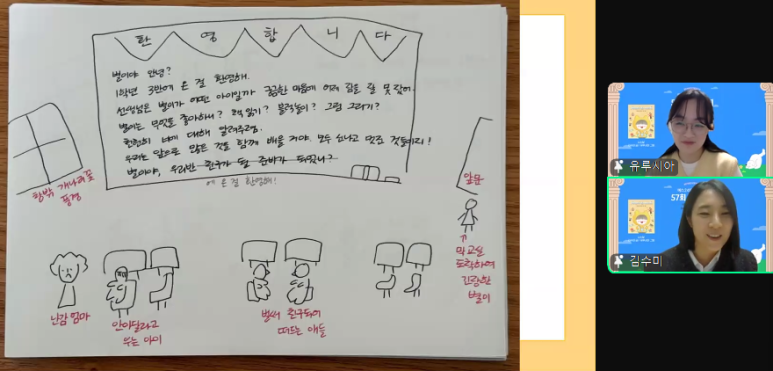 환영합니다
별이야 안녕?
1학년 3반에 온 걸 환영해.
선생님은 별이가 어떤 아이일까 궁금한 마음에 어제 잠을 잘 못 잤어.
별이는 무엇을 좋아하니? 책 읽기? 블럭놀이? 그림 그리기?
천천히 너에 대해 알려주렴.
우리는 앞으로 많은 것을 함께 배울 거야. 모두 신나고 멋진 것들이지!
별이야, 우리반 친구가 될 준비가 되었니?
온 걸 환영해!
창밖 개나리꽃
풍경
앞문
막 교실
도착하여
긴장한
별이
난감 엄마
안아달라고
우는 아이
벌써 친구되어
떠드는 애들
유루시아
57회
김수미